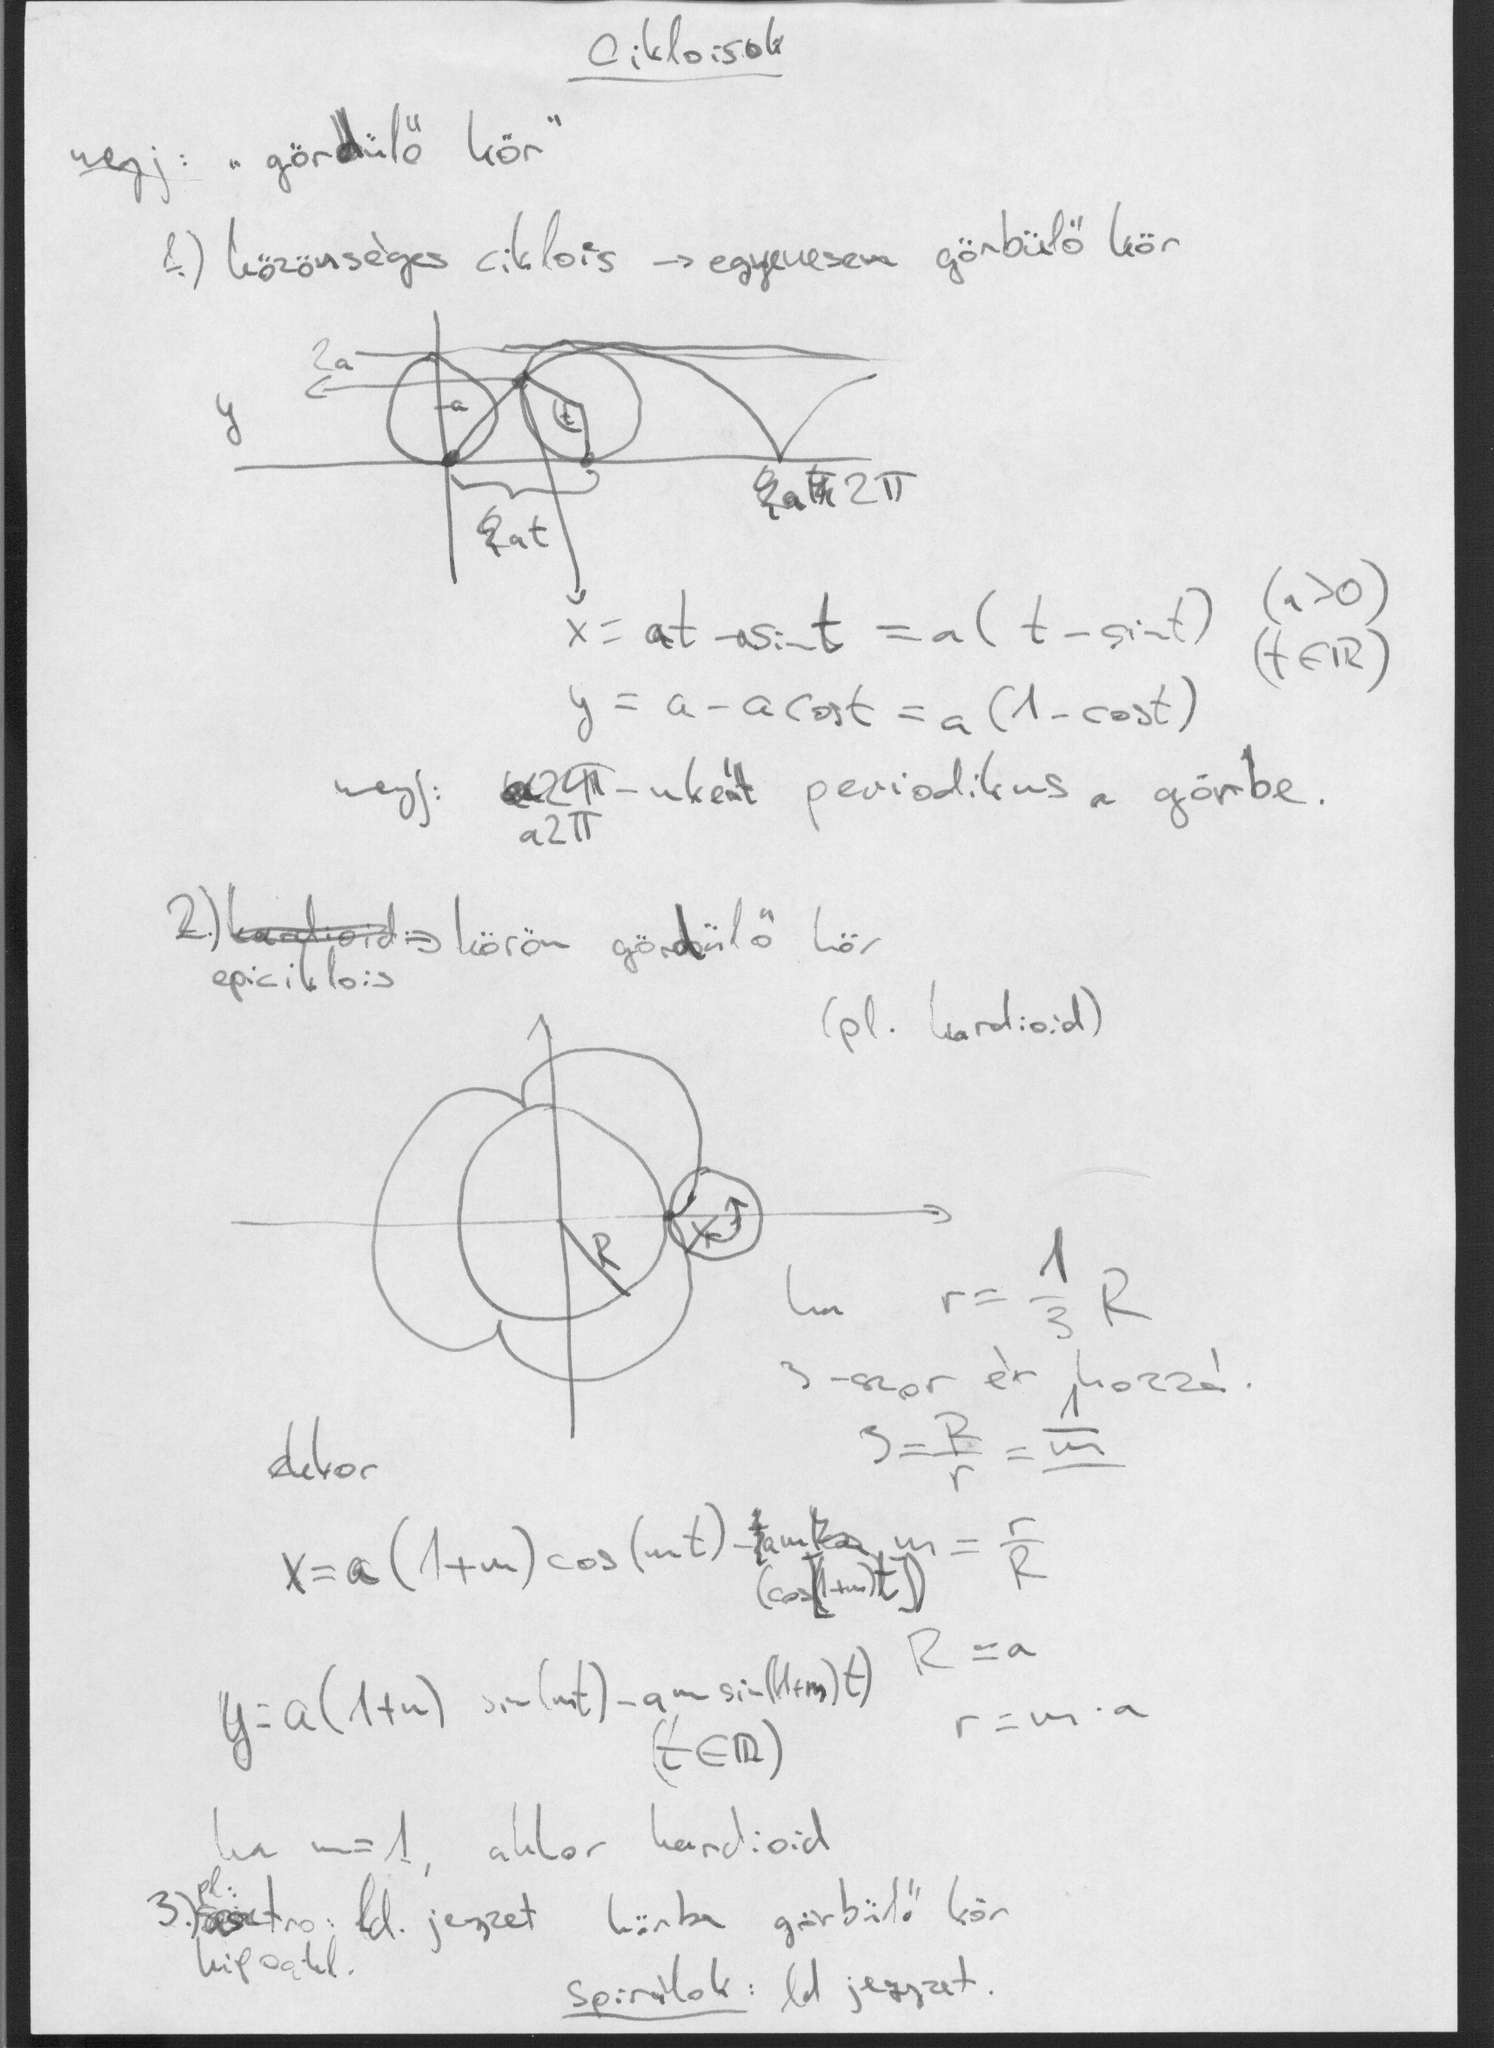 Cikloisok
megj: „gördülő kör"
1.) közönséges ciklois → egyenesen görbülő kör
2a
a
y
t
at
a 2π
x = at - a sin t = a (t - sin t) (a>0)
(t ∈ ℝ)
y = a - a cos t = a (1 - cos t)
megj: -nként periodikus a görbe.
a2π
2.) kardioid ⇒ körön gördülő kör
epiciklois
(pl. kardioid)
R
ha r = 1/3 R
3-szor ér hozzá.
3 = R/r = 1/m
ekkor
x = a (1+m) cos(mt) - am
(cos[(1+m)t])
m = r/R
y = a (1+m) sin(mt) - am sin((1+m)t)
(t ∈ ℝ)
R = a
r = m·a
ha m=1, akkor kardioid
pl:
3.) asztro: ld. jegyzet körbe görbülő kör
hipocikl.
Spirálok: ld jegyzet.